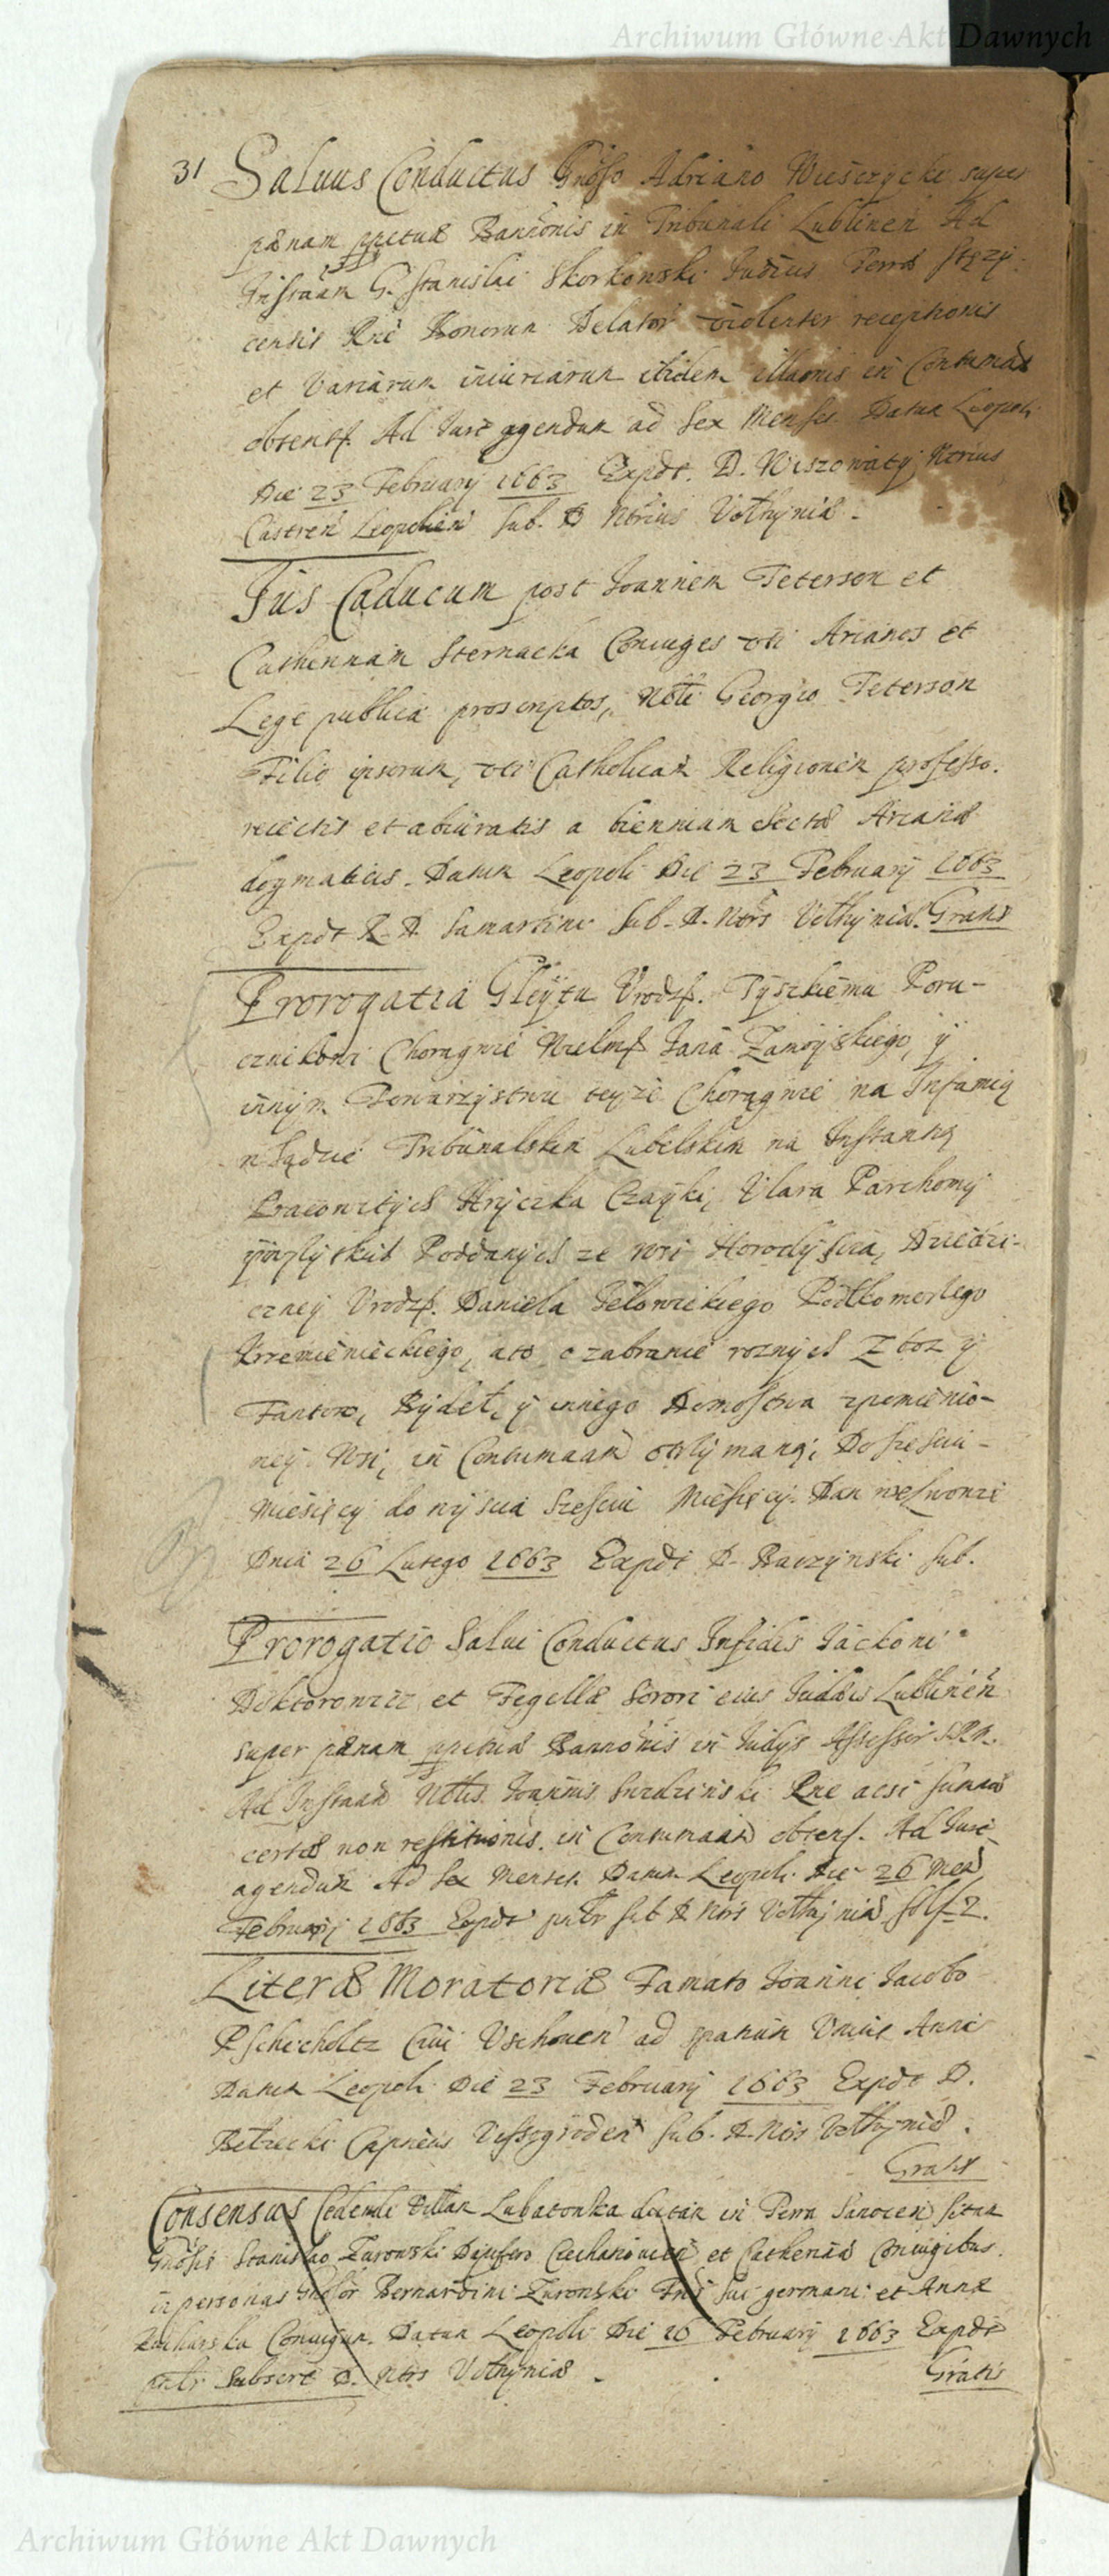 Archiwum Główne Akt Dawnych
31 Saluus Conductus Gnoso Adriano Wieszczycki super
pænam ppetuæ Bannonis in Tribunali Lublinen Ad
Instaam G. Stanislai Skorkowski Iudicis Terræ
censis Rne Bonorum Delator violenter receptionis
et Variarum iniuriarum itidem illaonis in Contumaa
obtentæ. Ad Iure agendum ad Sex Menses Datum Leopoli
Die 23 February 1663 Expdt. D. Wiszowaty Notrius
Castren Leopolien Sub. D Notrius Volhyniæ
Jus Caducum post Ioannem Peterson et
Catherinam Sternacka Coniuges uti Arianos et
Lege publica proscriptos, Nobli Georgio Peterson
Filio ipsorum, uti Catholicam Religionem professo.
reiectis et abiuratis a biennium Sectæ Arianæ
dogmaticis. Datum Leopoli Die 23 February 1663
Expdt R. D. Samartini Sub. D. Notrs Volhyniæ. Gratis
Prorogatia Gleytu Urodz. Tyszkiemu Poru-
cznikowi Chorągwie Wielm Jana Zamoyskiego, y
innym Towarzystwu teyże Chorągwie na Infamią
w Sądzie Tribunalskim Lubelskim na Instantią
Pracowitych Hryczka Czayki, Ulara Parchomy
Poddanych ze wsi Horodyscza, Dziedzi-
czney Urodz. Daniela Jełowickiego Podkomorzego
Krzemienieckiego, ato o zabranie roznych Zboz y
Fantow, Bydeł, y innego Domostwa zpomienio-
ney Wsi, in Contumaam otrzymaną, Do Szesciu-
Miesięcy do wyscia Szesciu Miesięcy. Dan we Lwowie
Dnia 26 Lutego 1663 Expdt D. Baczynski Sub.
Prorogatio Salui Conductus Infideli Iackowi
Doktorowicz et Fegellæ Sorori eius Iudæis Lublinen
super pænam ppetuæ Bannonis in Iudys Assessor S.R.M.
Ad Instaam Nobls. Ioannis Suzdzinski Rne acsi Summæ
certæ non restitutionis. in Contumaam obtent. Ad Iure
agendum Ad Sex Menses. Datum Leopoli. Die 26 Men
February 1663 Expdt patr sub D Notrs Volhyniæ
Literæ Moratoriæ Famato Ioanni Iacobo
Pschicholtz Ciui Vschouen ad spatium Unius Anni
Datum Leopoli Die 23 February 1663 Expdt D.
Betzecki Sub. D. Notrs Volhyniæ.
Gratis
Consensus Cedendi Villam Lubatowka dictam in Terra Sanocen sitam
Gnosis Stanislao Zurowski Dapifero Ciechanouien et Catherinæ Coniugibus.
in personas Gnosor Bernardini Zurowski Fris sui germani et Annæ
Coniugum. Datum Leopoli Die 26 February 1663 Expdt
patr Subscrt D. Notrs Volhyniæ
Gratis
Archiwum Główne Akt Dawnych